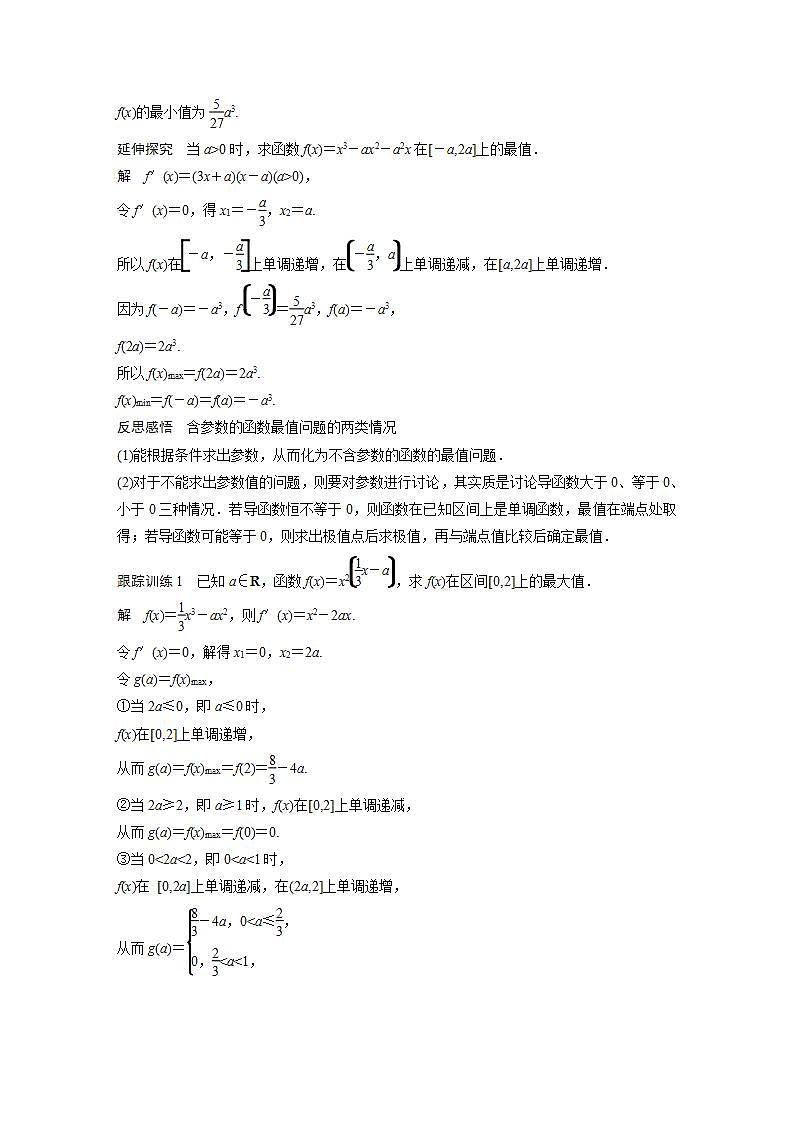 f(x)的最小值为5/27a³.
延伸探究　当a>0时，求函数f(x)＝x³－ax²－a²x在[－a,2a]上的最值．
解　f′(x)＝(3x＋a)(x－a)(a>0)，
令f′(x)＝0，得x₁＝－a/3，x₂＝a.
所以f(x)在[－a，－a/3]上单调递增，在(－a/3，a)上单调递减，在[a,2a]上单调递增．
因为f(－a)＝－a³，f(－a/3)＝5/27a³，f(a)＝－a³，
f(2a)＝2a³.
所以f(x)max＝f(2a)＝2a³.
f(x)min＝f(－a)＝f(a)＝－a³.
反思感悟　含参数的函数最值问题的两类情况
(1)能根据条件求出参数，从而化为不含参数的函数的最值问题．
(2)对于不能求出参数值的问题，则要对参数进行讨论，其实质是讨论导函数大于0、等于0、
小于0三种情况．若导函数恒不等于0，则函数在已知区间上是单调函数，最值在端点处取
得；若导函数可能等于0，则求出极值点后求极值，再与端点值比较后确定最值．
跟踪训练1　已知a∈R，函数f(x)＝x²(1/3x－a)，求f(x)在区间[0,2]上的最大值．
解　f(x)＝1/3x³－ax²，则f′(x)＝x²－2ax.
令f′(x)＝0，解得x₁＝0，x₂＝2a.
令g(a)＝f(x)max，
①当2a≤0，即a≤0时，
f(x)在[0,2]上单调递增，
从而g(a)＝f(x)max＝f(2)＝8/3－4a.
②当2a≥2，即a≥1时，f(x)在[0,2]上单调递减，
从而g(a)＝f(x)max＝f(0)＝0.
③当0<2a<2，即0<a<1时，
f(x)在 [0,2a]上单调递减，在(2a,2]上单调递增，
从而g(a)＝{8/3－4a，0<a≤2/3，
0，2/3<a<1，